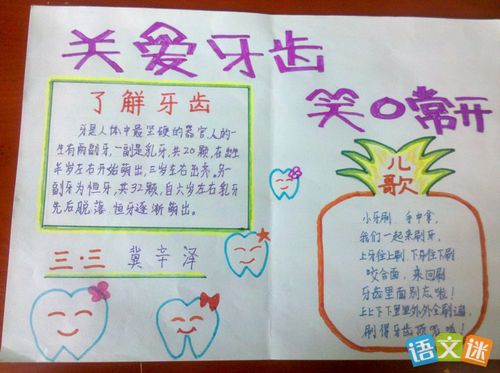 关爱牙齿
笑口常开
了解牙齿
牙是人体中最坚硬的器官,人的一
生有两副牙,一副是乳牙,共20颗,在出生
半岁左右开始萌出,三岁左右出齐。另一
副牙为恒牙,共32颗,自六岁左右乳牙
先后脱落 恒牙逐渐萌出。
三·三 冀辛泽
儿
歌
小牙刷 手中拿,
我们一起来刷牙,
上牙往上刷 下牙往下刷
咬合面,来回刷
牙齿里面别忘啦!
上上下下里里外外全刷遍,
刷得牙齿
语文迷